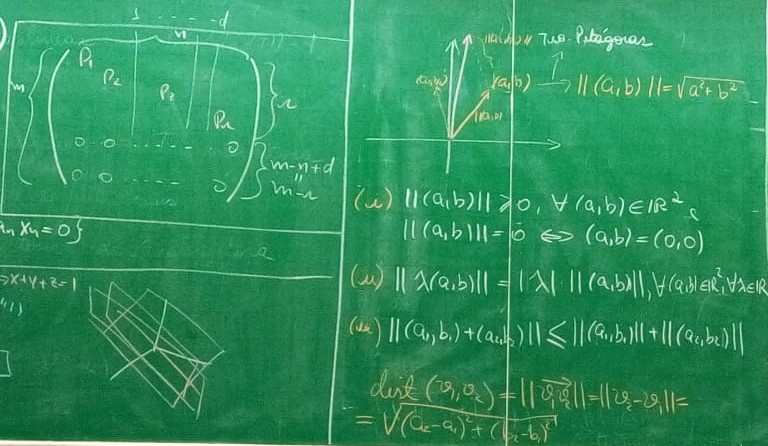 1 ...... d
n
m
P₁
P₂
P₃
Pᵣ
r
0 0 ..... 0
0 0 .... 0
m-n+d
m-r
Xₙ=0}
x+y+z=1
Teo. Pitágoras
(a,b) → ||(a,b)||=√a²+b²
(i) ||(a,b)|| ≥ 0, ∀ (a,b) ∈ ℝ² e
||(a,b)|| = 0 ⇔ (a,b) = (0,0)
(ii) ||λ(a,b)|| = |λ|·||(a,b)||, ∀(a,b)∈ℝ², ∀λ∈ℝ
(iii) ||(a₁,b₁)+(a₂,b₂)|| ≤ ||(a₁,b₁)||+||(a₂,b₂)||
dist (v₁,v₂) = ||v₁v₂|| = ||v₂-v₁|| =
= √(a₂-a₁)²+(b₂-b₁)²